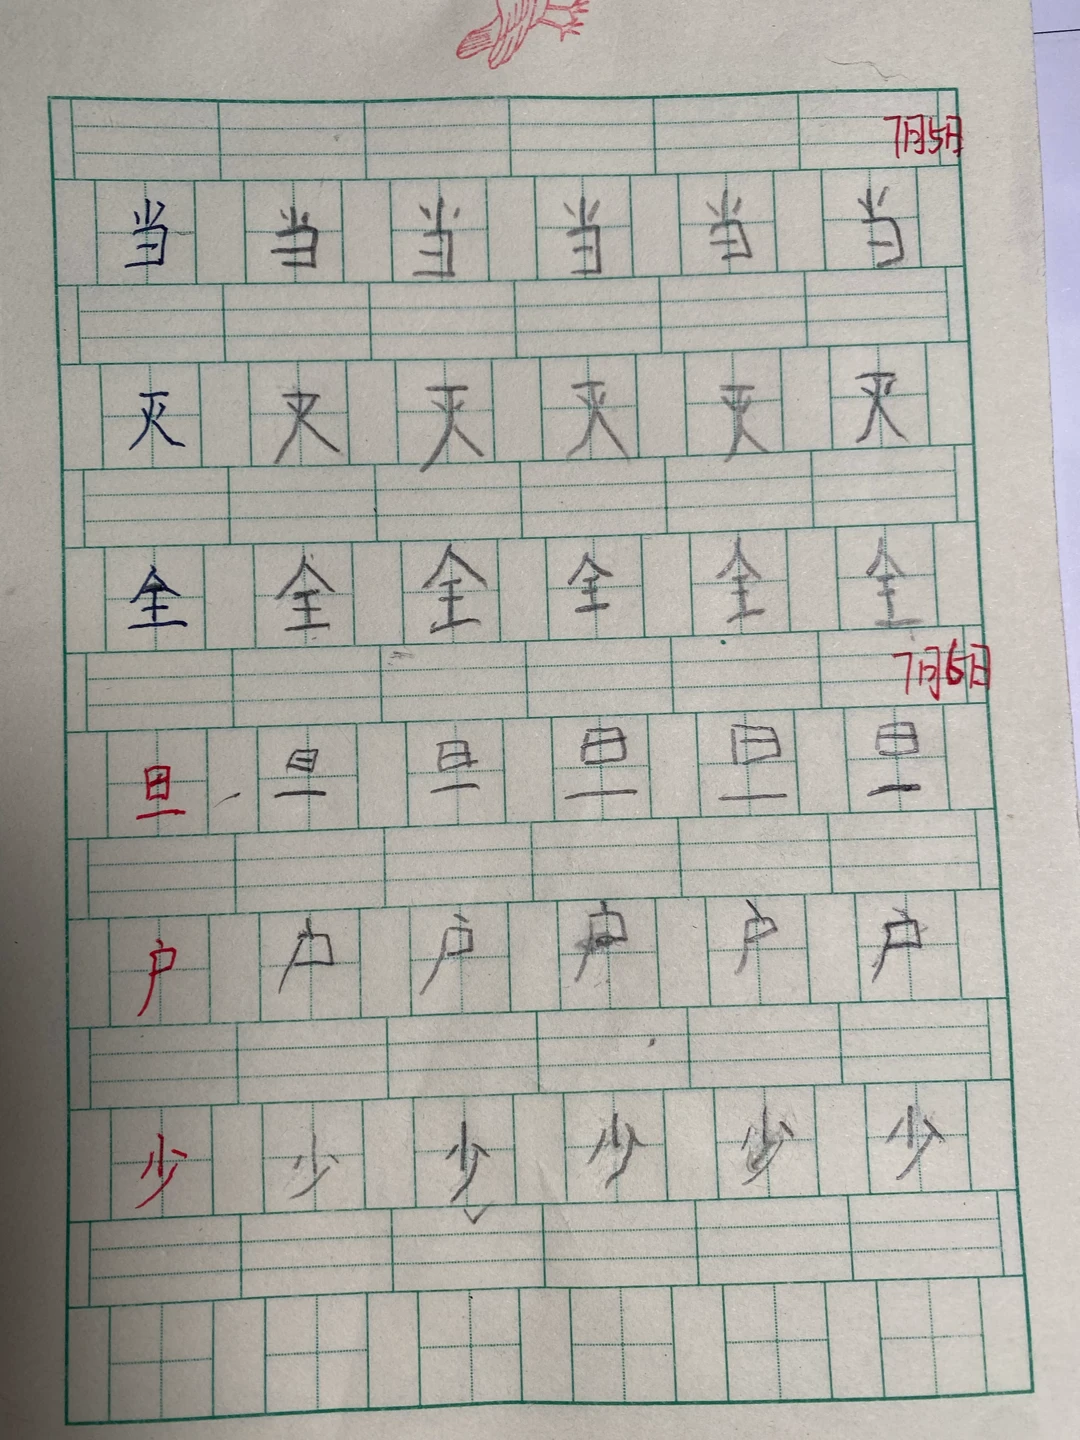 7月5日
当 当 当 当 当 当
灭 灭 灭 灭 灭 灭
全 全 全 全 全 全
7月6日
旦 旦 旦 旦 旦 旦
户 户 户 户 户 户
少 少 少 少 少 少